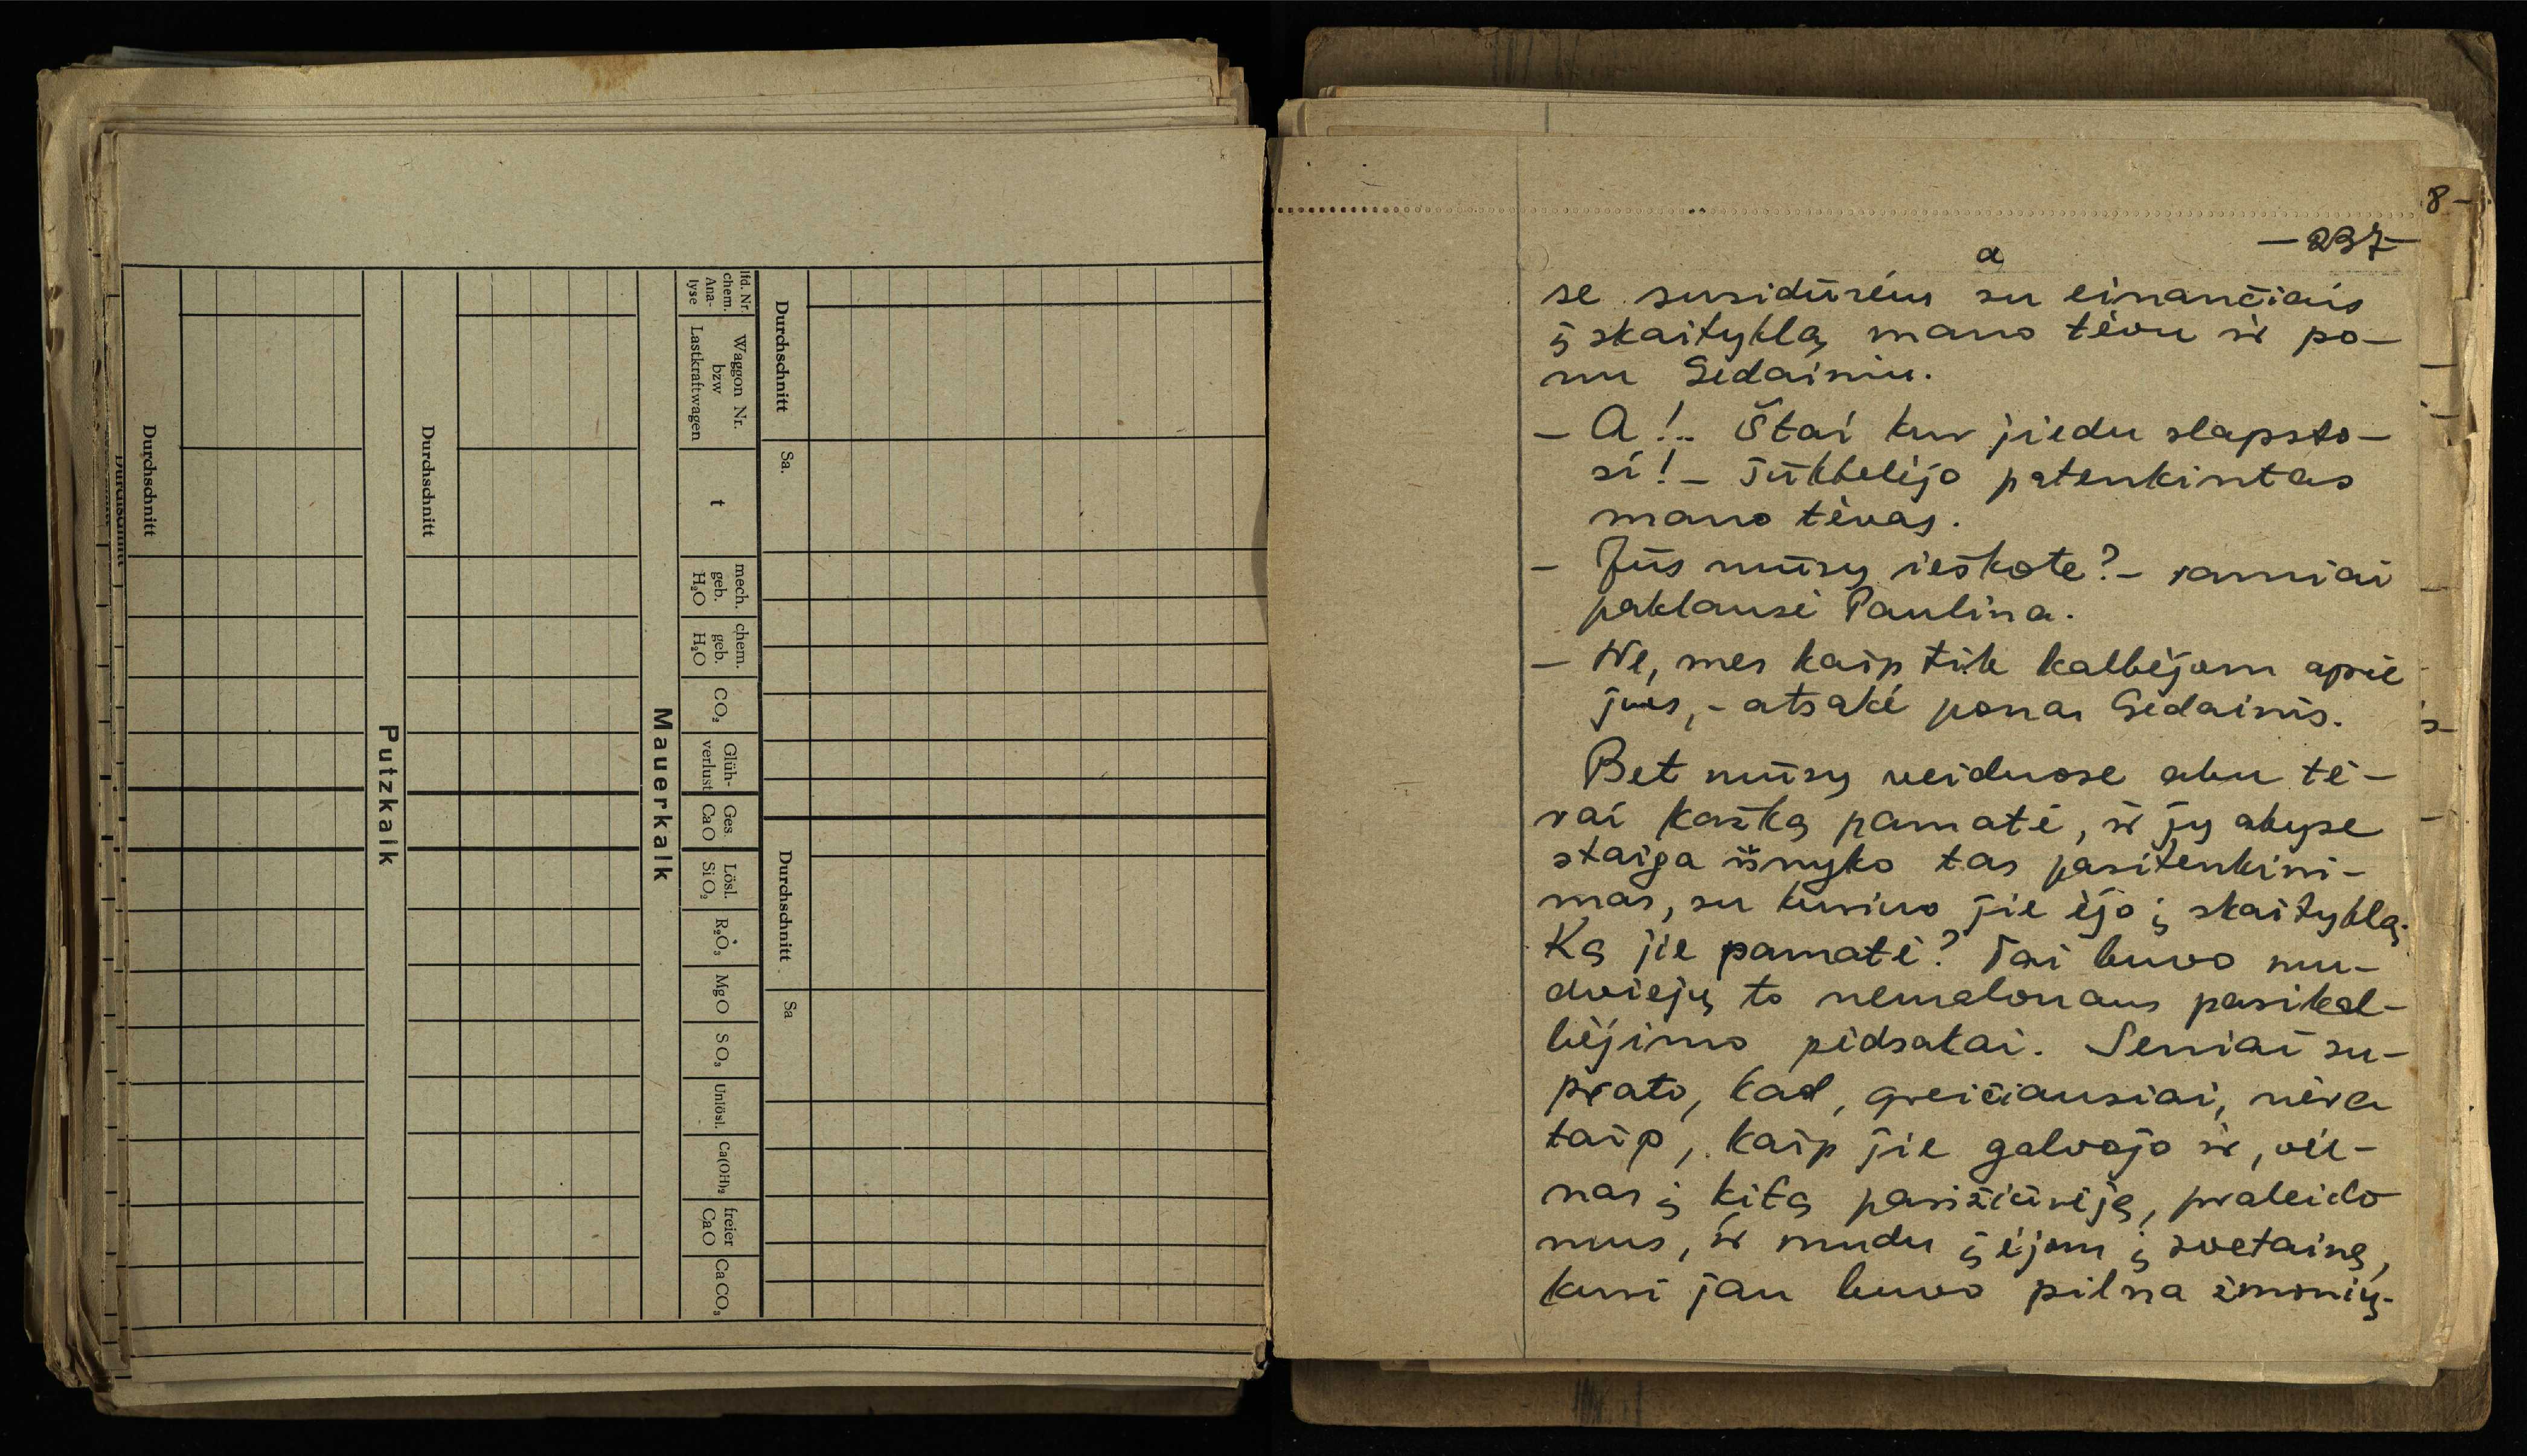 Durchschnitt
Durchschnitt
Putzkalk
Durchschnitt
Mauerkalk
lfd. Nr. chem. Ana- lyse
Waggon Nr. bzw Lastkraftwagen
t
mech. geb. H₂O
chem. geb. H₂O
CO₂
Glüh- verlust
Ges. CaO
Lösl. SiO₂
R₂O₃
MgO
SO₃
Unlösl.
Ca(OH)₂
freier CaO
CaCO₃
Durchschnitt
Sa.
Durchschnitt
Sa
8-
—237—
a
se susidūrėm su einančiais
į skaityklą mano tėvu ir po-
nu Gedainiu.
— A!.. Štai kur jiedu slapsto-
si! – šūktelėjo patenkintas
mano tėvas.
– Jūs mūsų ieškote? – ramiai
paklausė Paulina.
– Ne, mes kaip tik kalbėjom apie
jus, – atsakė ponas Gedainis.
Bet mūsų veiduose abu tė-
vai kažką pamatė, ir jų akyse
staiga išnyko tas pasitenkini-
mas, su kuriuo jie ėjo į skaityklą.
Ką jie pamatė? Tai buvo mu-
dviejų to nemalonaus pasikal-
bėjimo pėdsakai. Seniai su-
prato, kad, greičiausiai, nėra
taip, kaip jie galvojo ir, vie-
nas į kitą pasižiūrėję, praleido
mus, ir mudu įėjom į svetainę,
kuri jau buvo pilna žmonių.